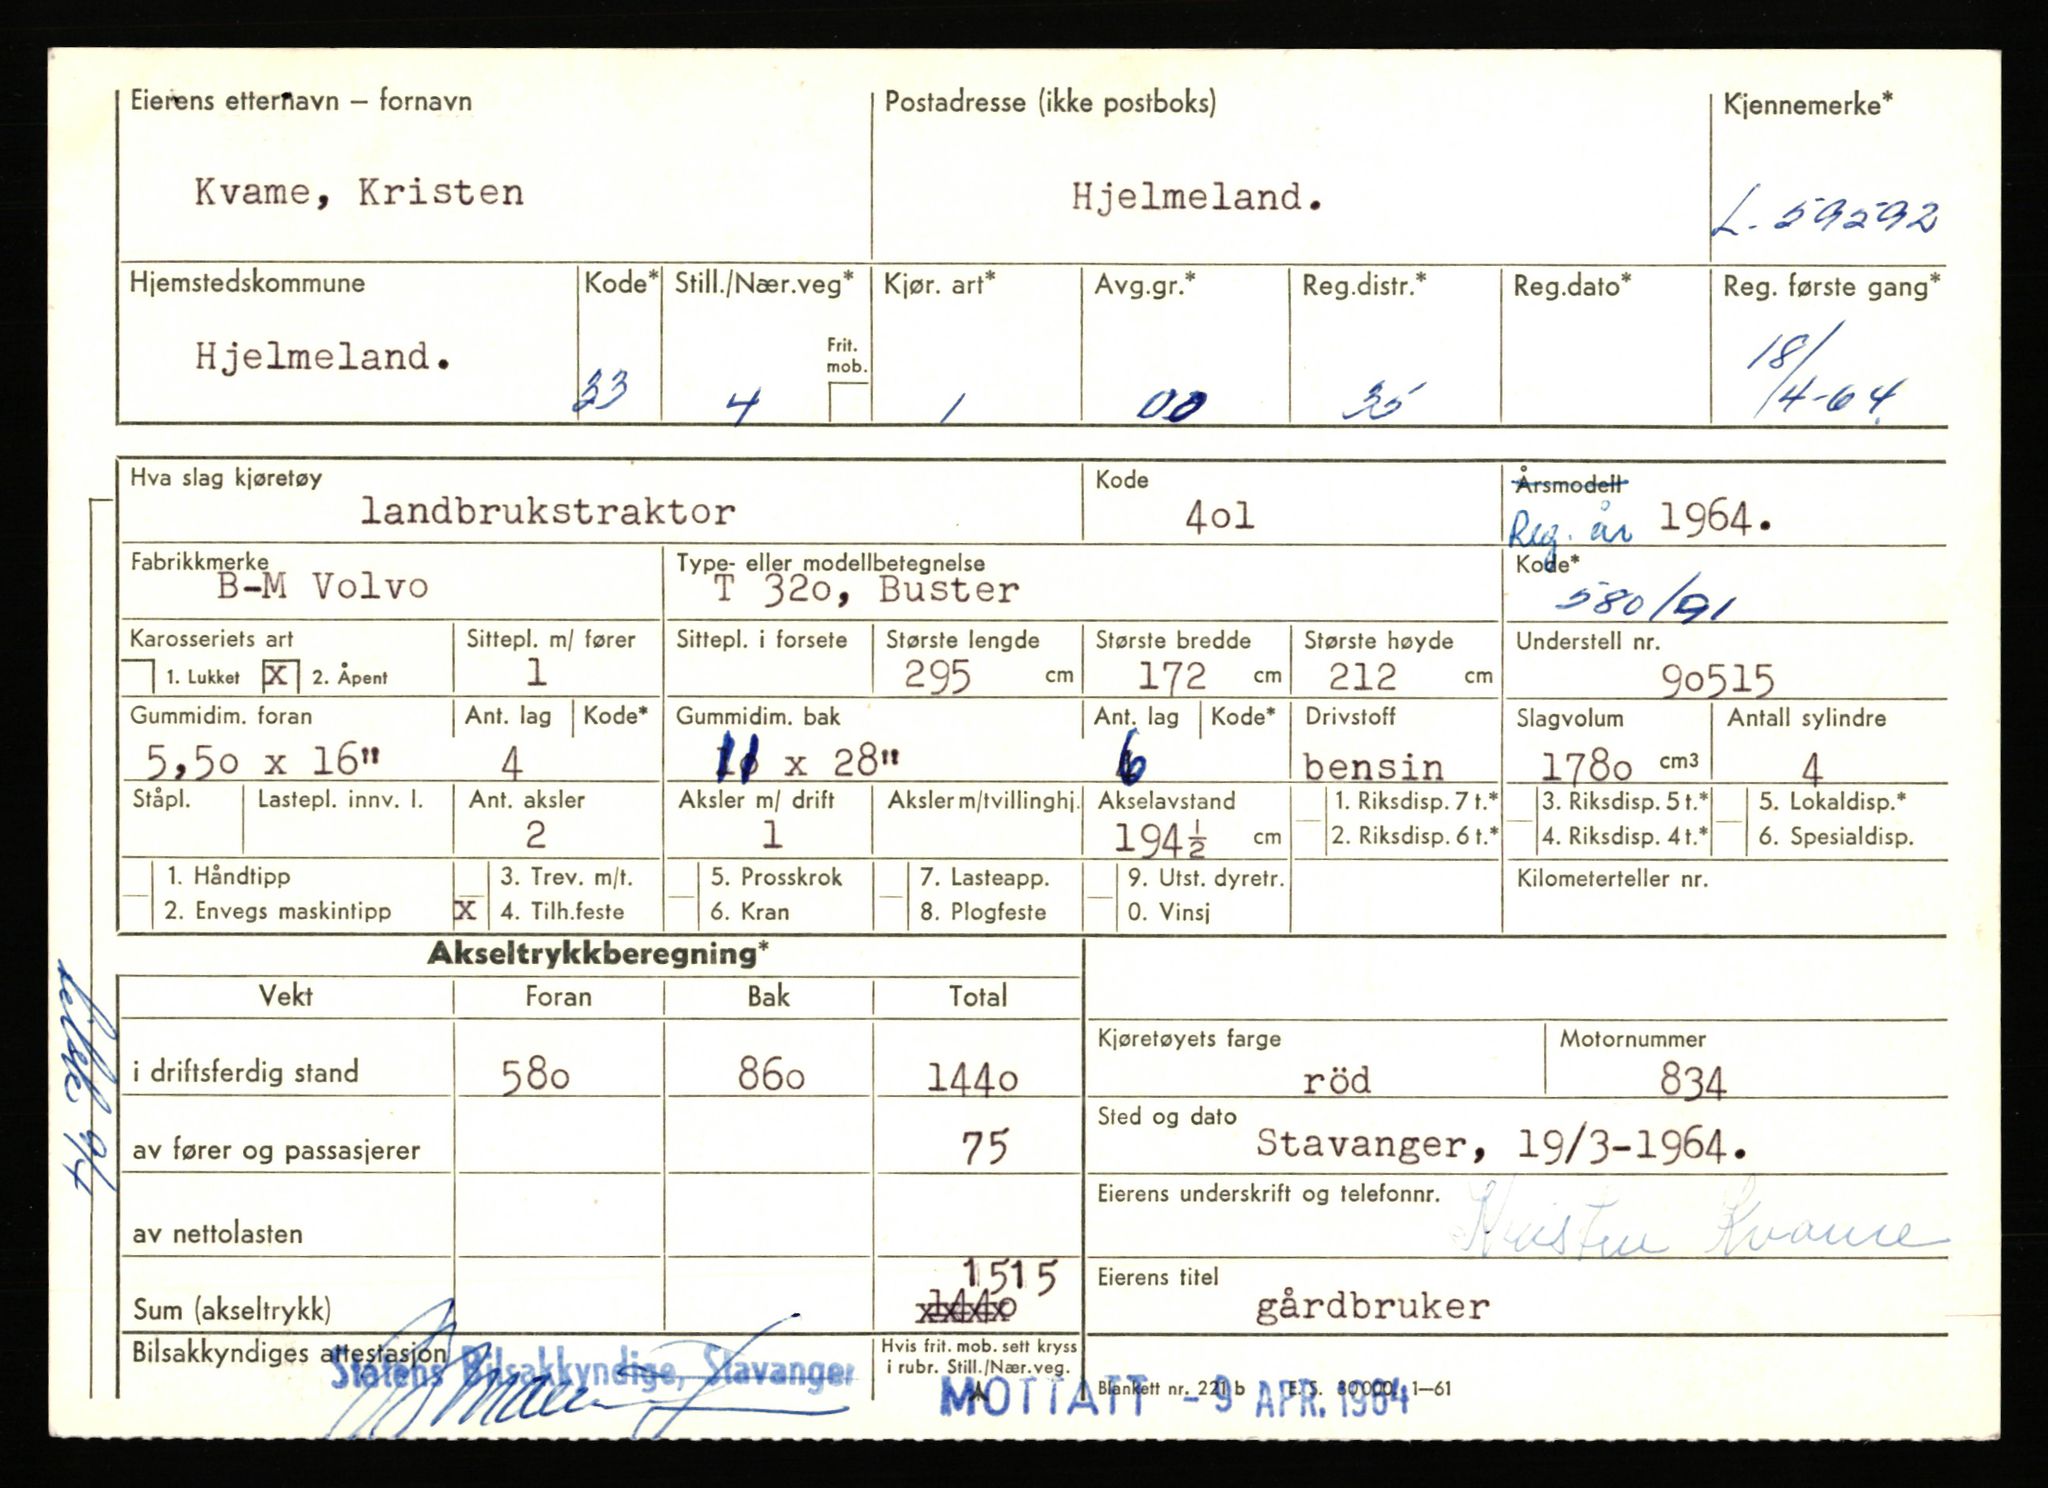 Eierens etternavn — fornavn Postadresse (ikke postboks) Kjennemerke*
Kvame, Kristen Hjelmeland. L-59592
Hjemstedskommune Kode* Still./Nær.veg* Kjør. art* Avg.gr.* Reg.distr.* Reg.dato* Reg. første gang*
Hjelmeland. 33 4 Frit. mob. 1 00 35 18/4-64
Hva slag kjøretøy Kode Årsmodell
landbrukstraktor 4o1 Reg. år 1964.
Fabrikkmerke Type- eller modellbetegnelse Kode*
B-M Volvo T 32o, Buster 580/91
Karosseriets art Sittepl. m/ fører Sittepl. i forsete Største lengde Største bredde Største høyde Understell nr.
1. Lukket X 2. Åpent 1 295 cm 172 cm 212 cm 9o515
Gummidim. foran Ant. lag Kode* Gummidim. bak Ant. lag Kode* Drivstoff Slagvolum Antall sylindre
5,5o x 16" 4 11 x 28" 6 bensin 178o cm3 4
Ståpl. Lastepl. innv. l. Ant. aksler Aksler m/ drift Aksler m/tvillinghj. Akselavstand 1. Riksdisp. 7 t.* 3. Riksdisp. 5 t.* 5. Lokaldisp.*
2 1 194½ cm 2. Riksdisp. 6 t.* 4. Riksdisp. 4 t.* 6. Spesialdisp.
1. Håndtipp 3. Trev. m/t. 5. Prosskrok 7. Lasteapp. 9. Utst. dyretr. Kilometerteller nr.
2. Envegs maskintipp X 4. Tilh.feste 6. Kran 8. Plogfeste 0. Vinsj
Akseltrykkberegning*
Vekt Foran Bak Total
Kjøretøyets farge Motornummer
i driftsferdig stand 58o 86o 144o röd 834
Sted og dato
av fører og passasjerer 75 Stavanger, 19/3-1964.
Eierens underskrift og telefonnr.
Kristen Kvame
av nettolasten
1515 Eierens titel
Sum (akseltrykk) 144o gårdbruker
Bilsakkyndiges attestasjon Statens Bilsakkyndige, Stavanger
Hvis frit. mob. sett kryss
i rubr. Still./Nær.veg.
MOTTATT - 9 APR. 1964
Blankett nr. 221 b E. S. 80 000. 1—61
9/4